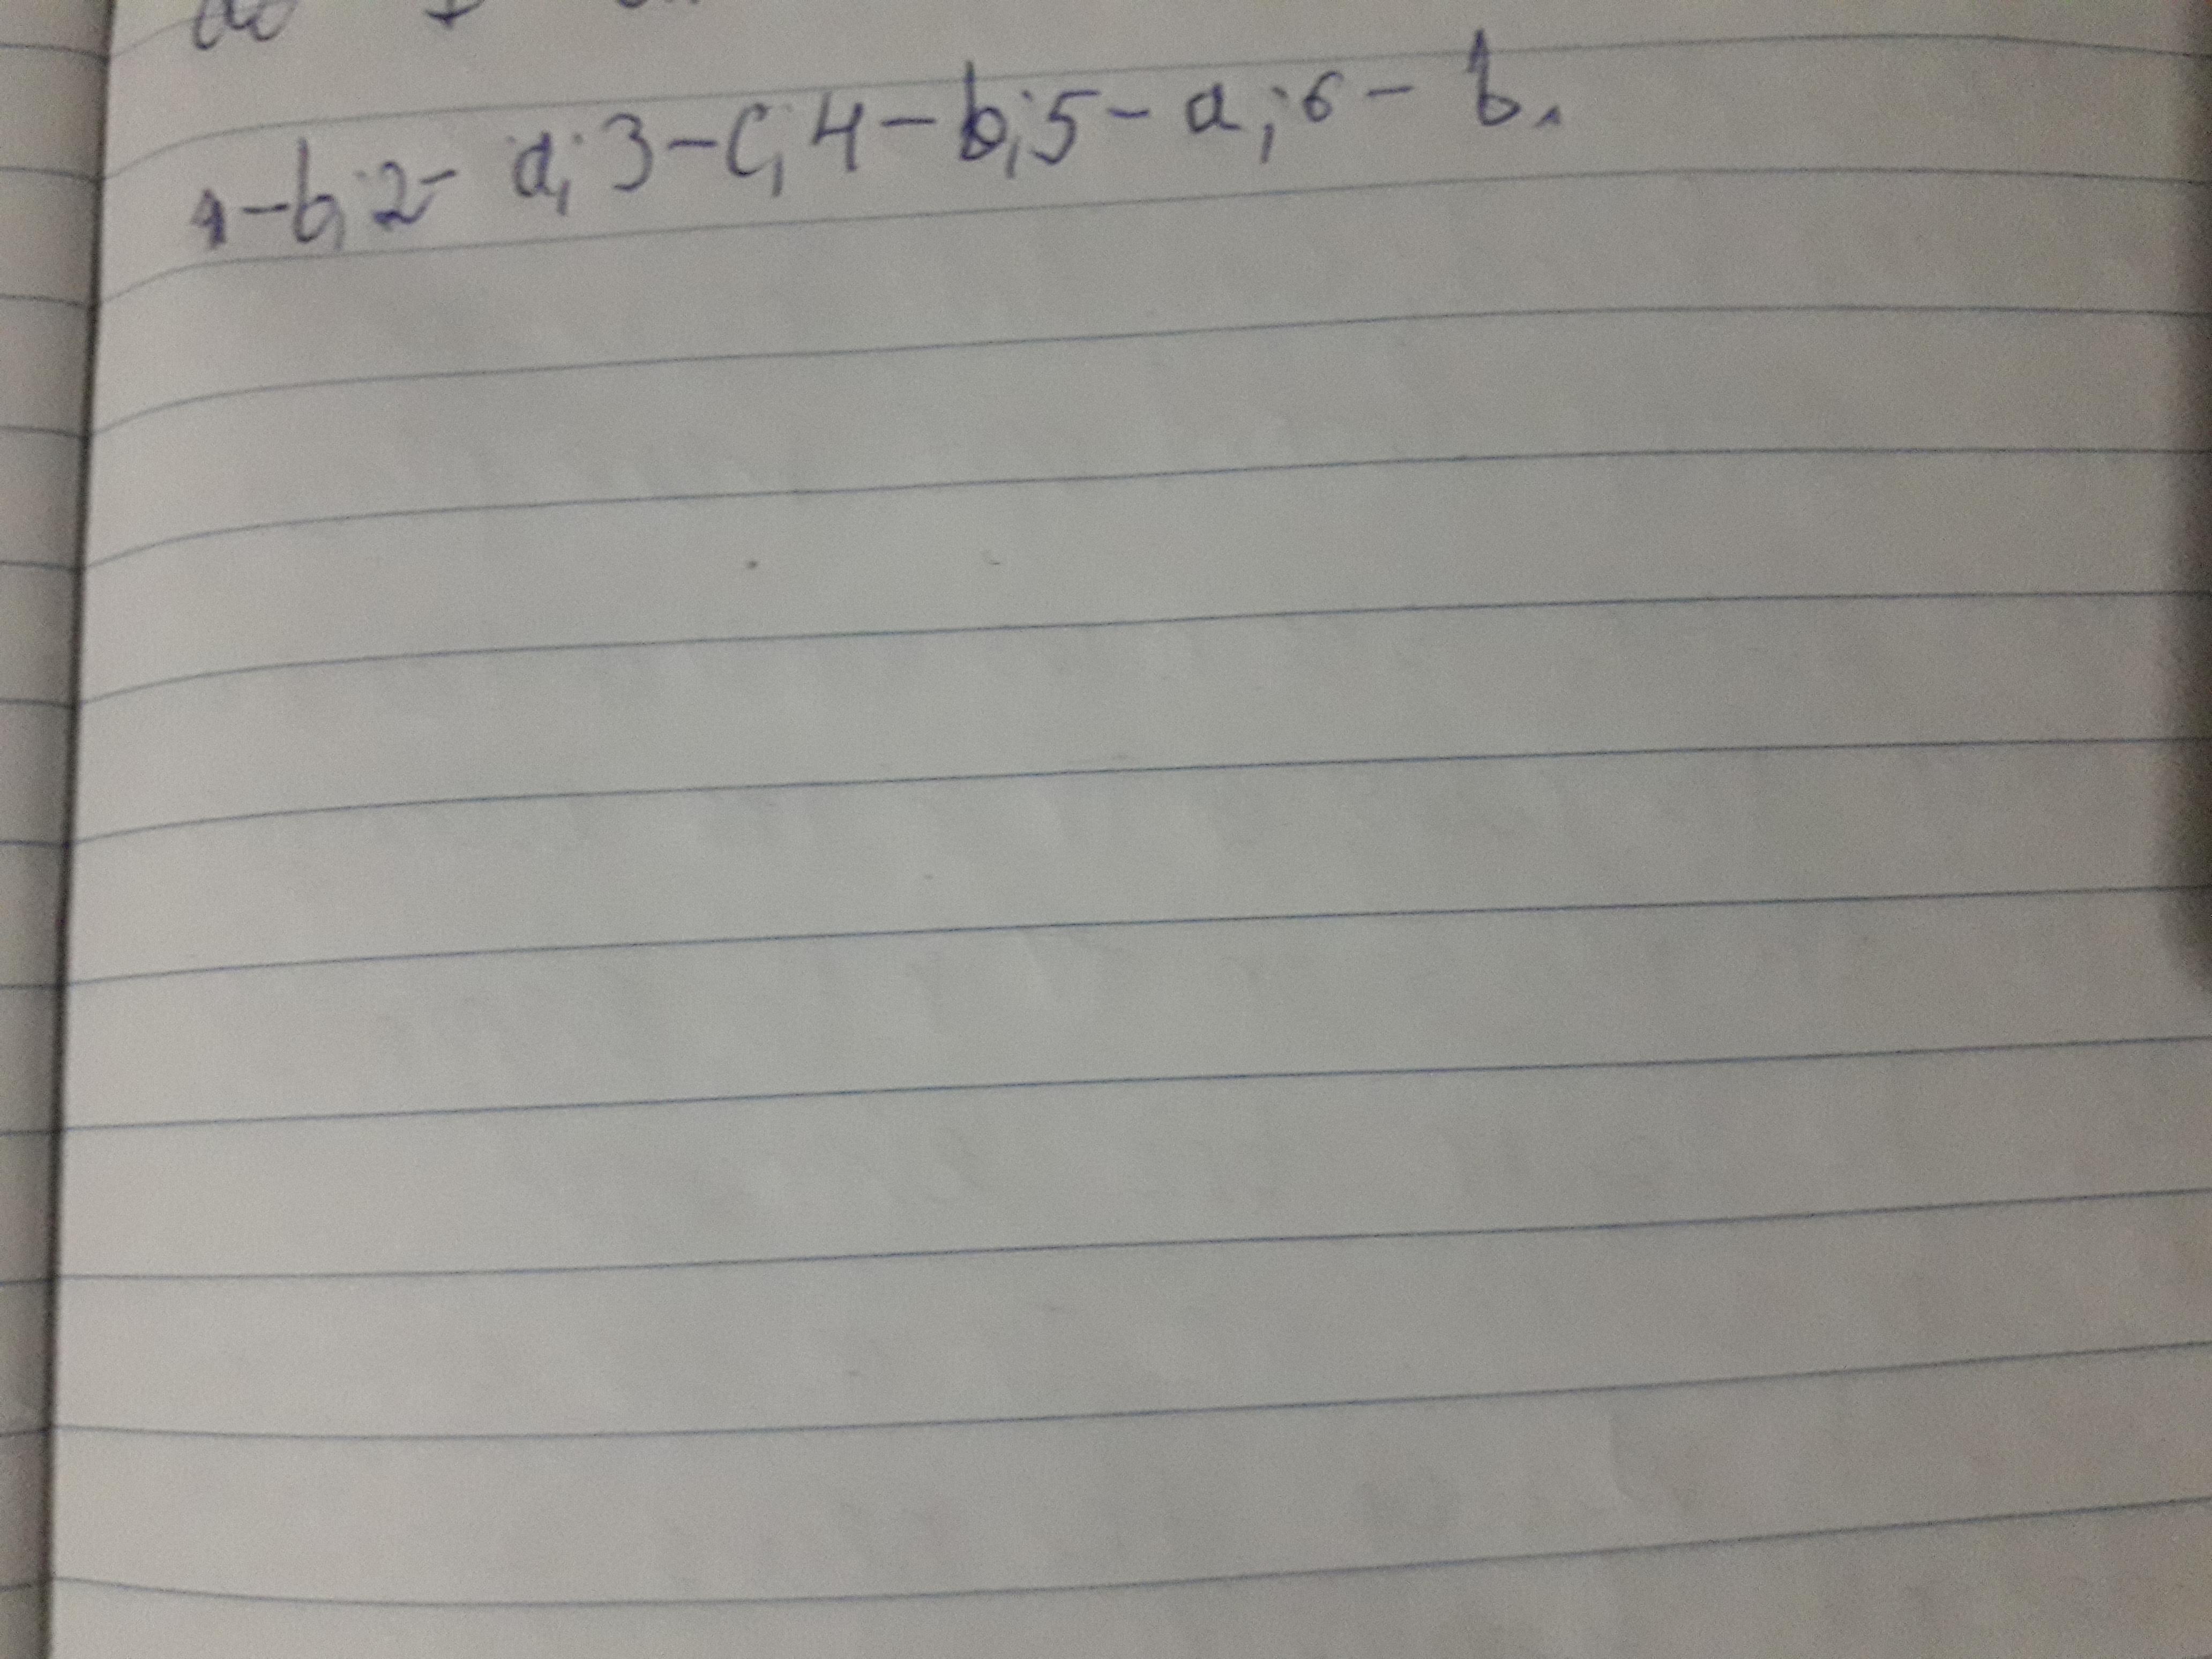 1-b; 2- a; 3-c; 4-b; 5-a; 6-b.